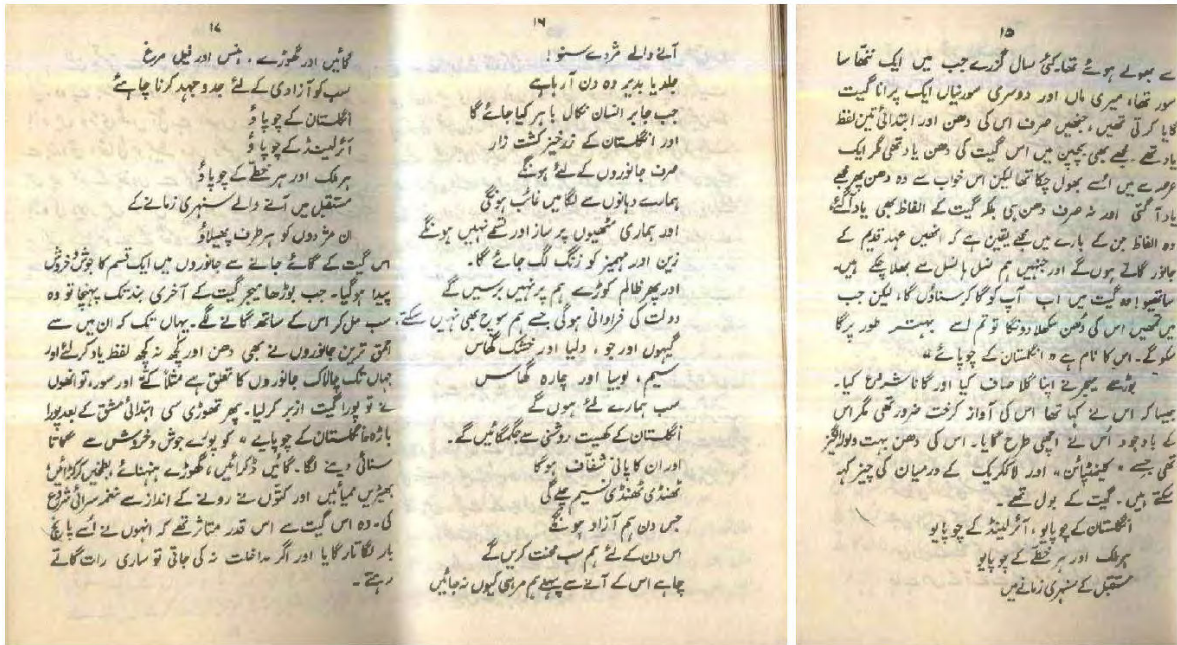 ۱۵
ے بھولے ہوئے تھا۔ کئی سال گزرے جب میں ایک ننھا سا
سور تھا، میری ماں اور دوسری سورنیاں ایک پرانا گیت
گایا کرتی تھیں، جنھیں صرف اس کی دھن اور ابتدائی تین لفظ
یاد تھے۔ مجھے بھی بچپن میں اس گیت کی دھن یاد تھی مگر ایک
عرصے میں اسے بھول چکا تھا لیکن اس خواب سے وہ دھن پھر مجھے
یاد آ گئی اور نہ صرف دھن ہی بلکہ گیت کے الفاظ بھی یاد آ گئے
وہ الفاظ جن کے بارے میں مجھے یقین ہے کہ انھیں عہد قدیم کے
جانور گاتے ہوں گے اور جنہیں ہم نسل ہا نسل سے بھلا چکے ہیں۔
ساتھیو! وہ گیت میں اب آپ کو گا کر سناؤں گا، لیکن جب
میں تمھیں اس کی دُھن سکھلا دونگا تو تم اسے بہتر طور پر گا
سکو گے۔ اس کا نام ہے "انگلستان کے چوپائے"
بوڑھے میجر نے اپنا گلا صاف کیا اور گانا شروع کیا۔
جیسا کہ اس نے کہا تھا اس کی آواز کرخت ضرور تھی مگر اس
کے باوجود اُس نے اچھی طرح گایا۔ اس کی دھن بہت ولولہ انگیز
تھی جسے " کلیمنٹائن" اور لاککریک کے درمیان کی چیز کہہ
سکتے ہیں۔ گیت کے بول تھے۔
انگلستان کے چوپایو، آئرلینڈ کے چوپایو
ہر ملک اور ہر خطے کے چوپایو
مستقبل کے سنہری زمانے میں
۱۶
آنے والے مژدے سنو!
جلد یا بدیر وہ دن آ رہا ہے
جب جابر انسان نکال باہر کیا جائے گا
اور انگلستان کے زرخیز کشت زار
صرف جانوروں کے لئے ہونگے
ہمارے دہانوں سے لگامیں غائب ہونگی
اور ہماری مٹھیوں پر ساز اور تسمے نہیں ہونگے
زین اور مہمیز کو زنگ لگ جائے گا۔
اور پھر ظالم کوڑے ہم پر نہیں برسیں گے
دولت کی فراوانی ہوگی جسے ہم سوچ بھی نہیں سکتے۔
گیہوں اور جو، دلیا اور خشک گھاس
سیم، لوبیا اور چارہ گھاس
سب ہمارے لئے ہوں گے
انگلستان کے کھیت روشنی سے جگمگائیں گے۔
اور ان کا پانی شفّاف ہوگا
ٹھنڈی ٹھنڈی نسیم چلے گی
جس دن ہم آزاد ہونگے
اس دن کے لئے ہم سب محنت کریں گے
چاہے اس کے آنے سے پہلے ہم مر ہی کیوں نہ جائیں
۱۷
گائیں اور گھوڑے، ہنس اور فیل مرغ
سب کو آزادی کے لئے جدوجہد کرنا چاہئے
انگلستان کے چوپاؤ
آئرلینڈ کے چوپاؤ
ہر ملک اور ہر خطّے کے چوپاؤ
مستقبل میں آنے والے سنہری زمانے کے
ان مژدوں کو ہر طرف پھیلاؤ
اس گیت کے گائے جانے سے جانوروں میں ایک قسم کا جوش و خروش
پیدا ہوگیا۔ جب بوڑھا میجر گیت کے آخری بند تک پہنچا تو وہ
سب مل کر اس کے ساتھ گانے لگے۔ یہاں تک کہ ان میں سے
احمق ترین جانوروں نے بھی دھن اور کچھ نہ کچھ لفظ یاد کر لئے اور
جہاں تک چالاک جانوروں کا تعلق ہے مثلاً کتّے اور سور، تو انھوں
نے تو پورا گیت ازبر کر لیا۔ پھر تھوڑی سی ابتدائی مشق کے بعد پورا
باڑہ "انگلستان کے چوپایے" کو پورے جوش و خروش سے گاتا
سنائی دینے لگا۔ گائیں ڈکرائیں، گھوڑے ہنہنائے، بطخیں کڑکڑائیں
بھیڑیں ممیائیں اور کتّوں نے رونے کے انداز سے نغمہ سرائی شروع
کی۔ وہ اس گیت سے اس قدر متاثر تھے کہ انہوں نے اُسے پانچ
بار لگاتار گایا اور اگر مداخلت نہ کی جاتی تو ساری رات گاتے
رہتے۔